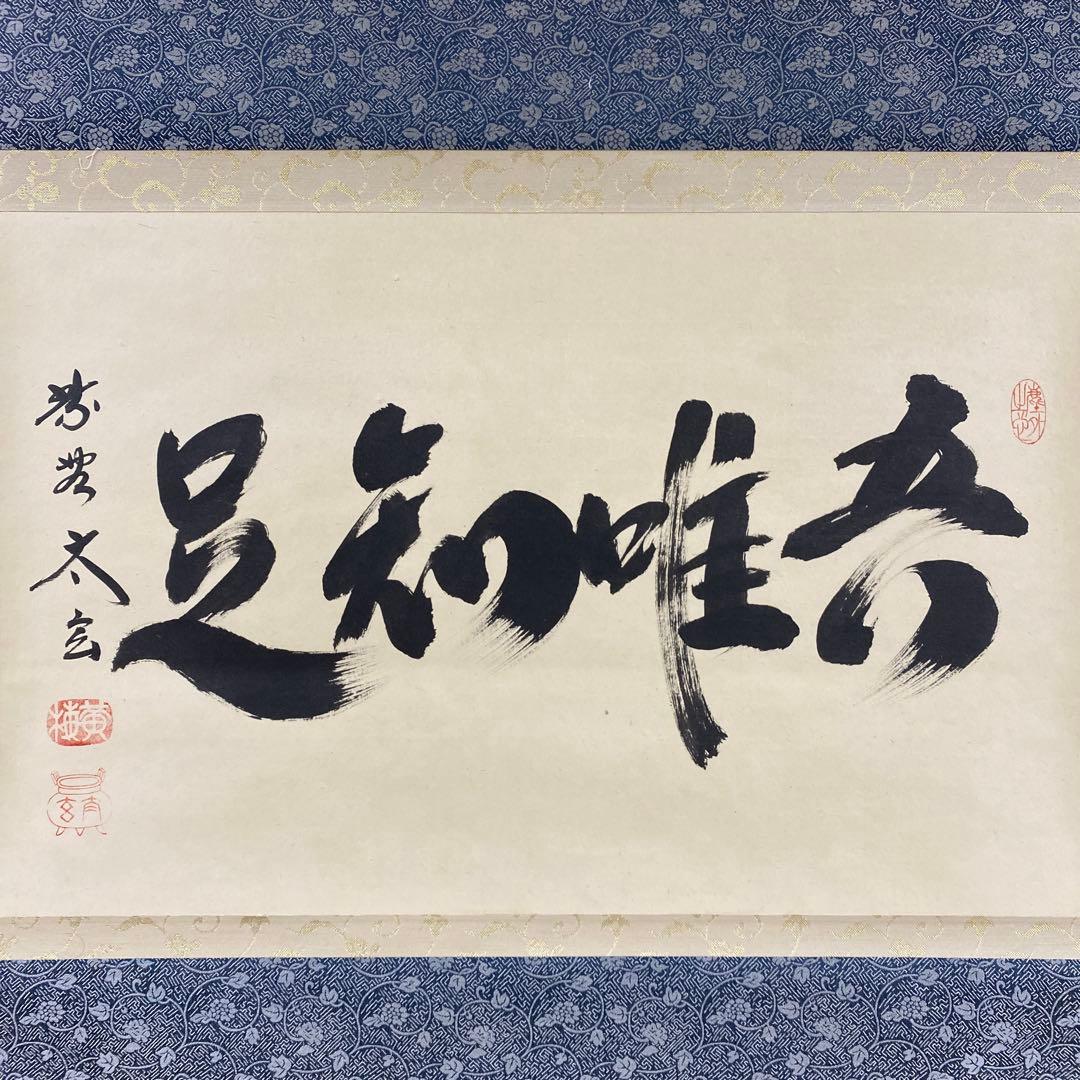 吾唯知足
紫野 太玄
黄梅